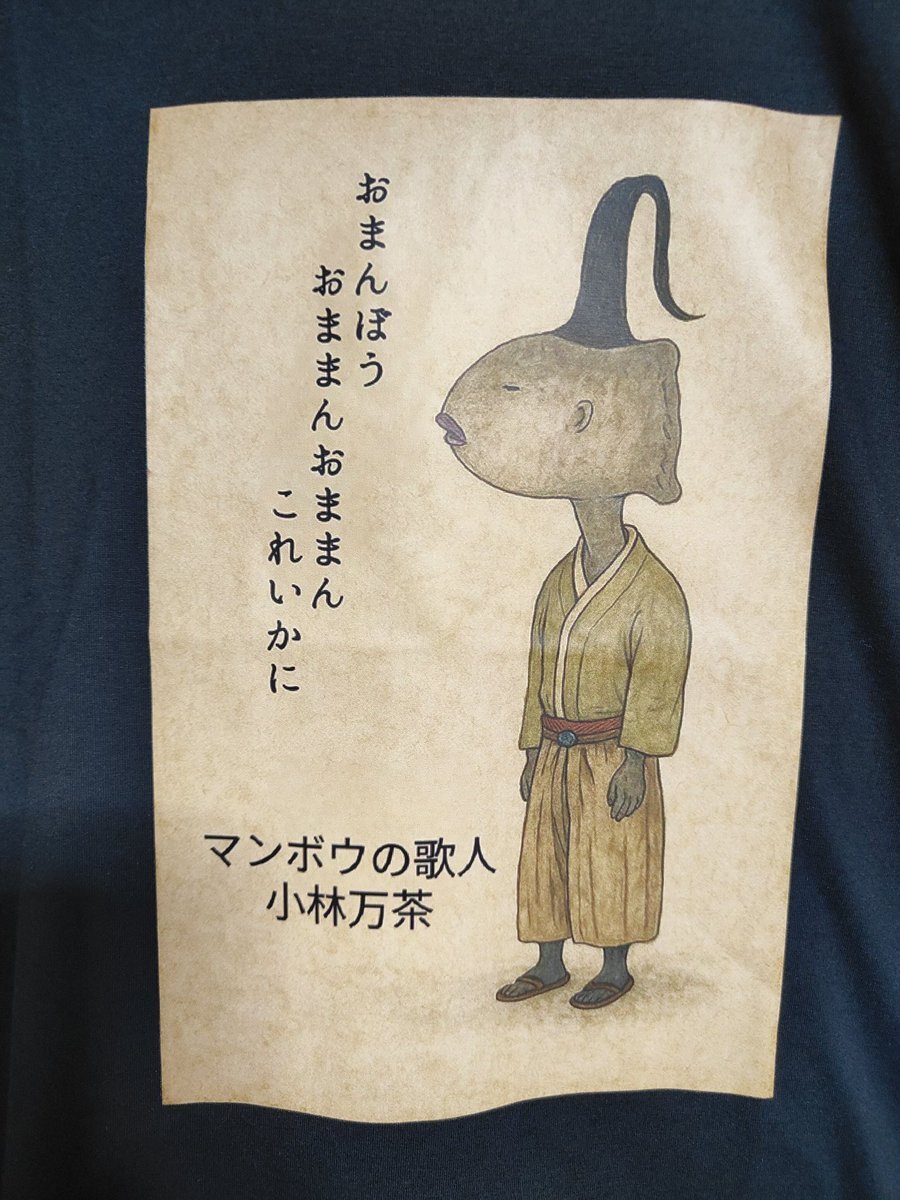 おまんぼう
おままんおままん
これいかに
マンボウの歌人
小林万茶